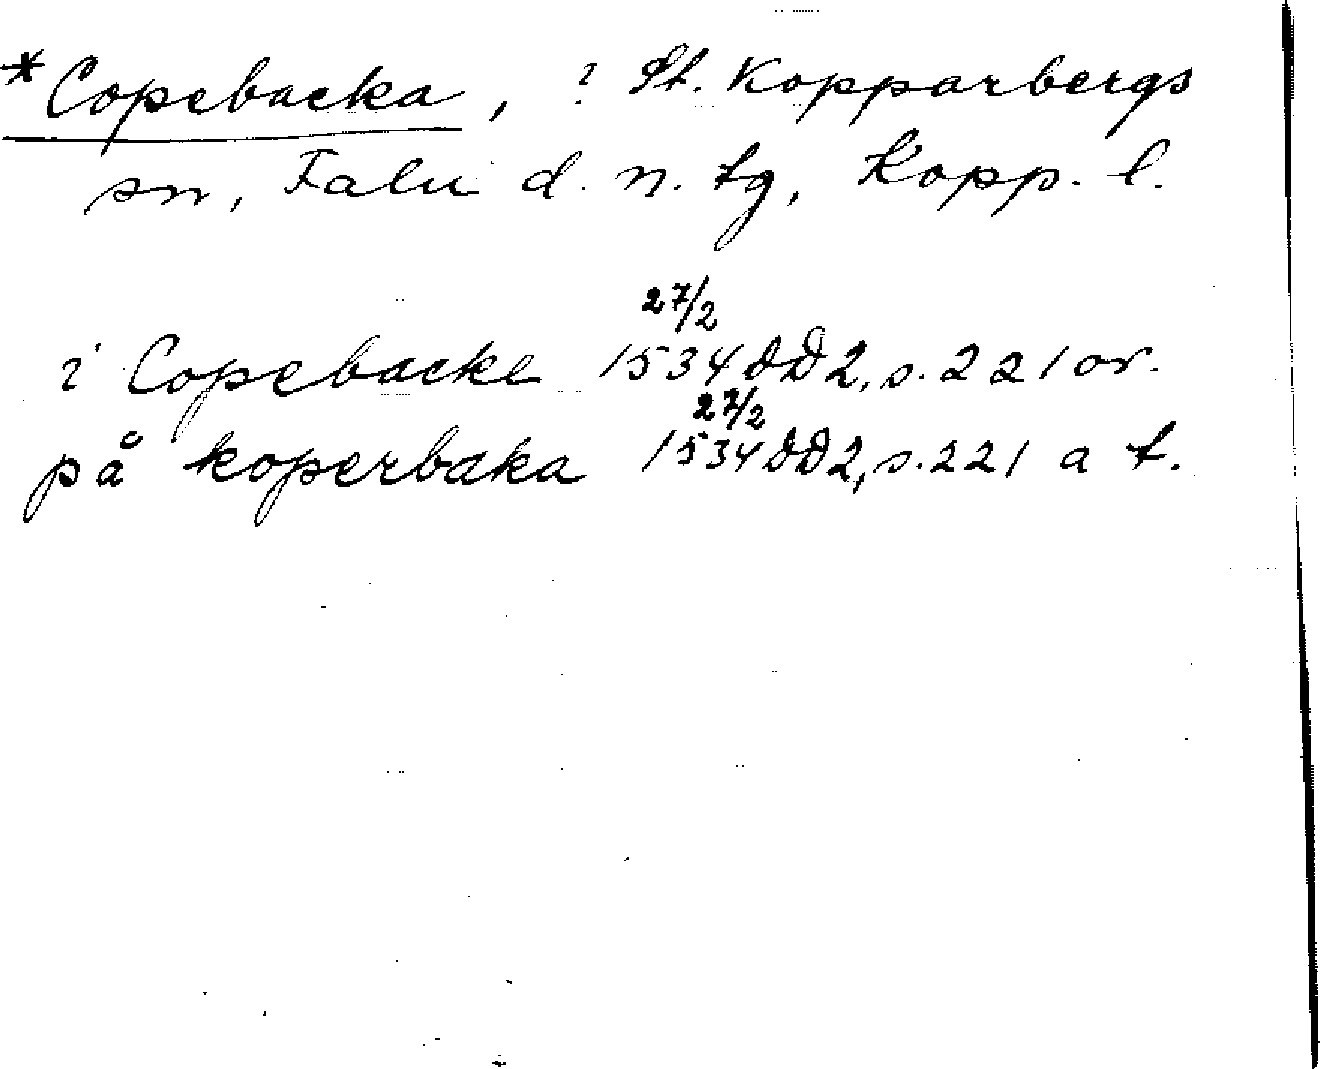 *Copebacka, ? St. Kopparbergs
sn, Falu d. n. tg, Kopp. l.
i Copebacke 27/2 1534 DD2, s. 221 or.
på koperbaka 27/2 1534 DD2, s. 221 a t.